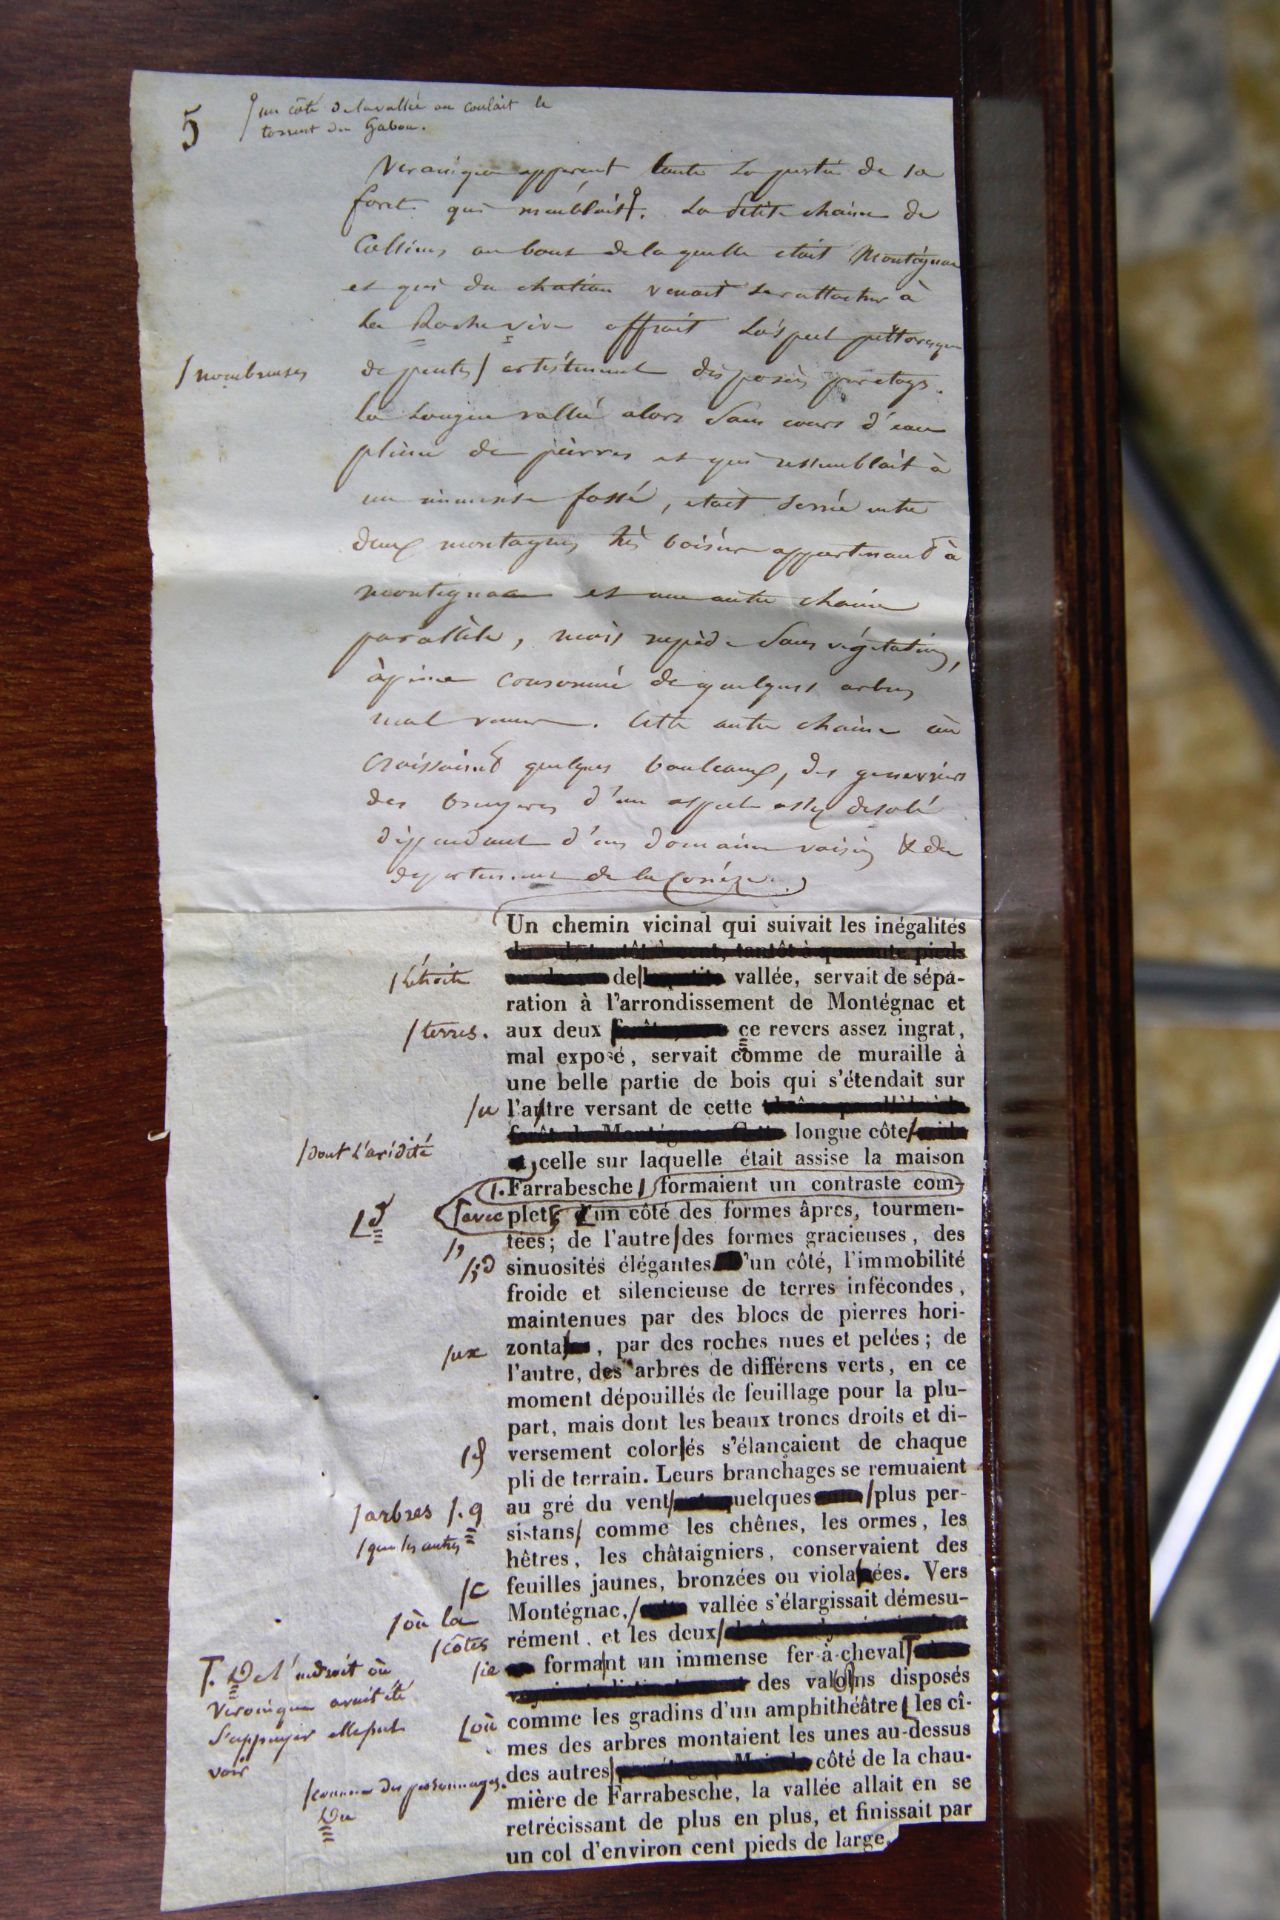 5
un côté de la vallée ou coulait le
torrent du Gabou.
Veronique apperçut toute la partie de la
foret qui meublait. La petite chaine de
Collines au bout de laquelle etait Montégnac
et qui du chateau venait se rattacher à
La Roche vive offrait
/ nombreuses
de pentes / artistement disposées
la longue vallée alors sans cours d'eau
pleine de pierres et qui ressemblait à
un immense fossé, etait serrée entre
deux montagnes très boisées appartenant à
montegnac et une autre chaine
parallèle, mais rapide sans végétation,
à peine couronné de quelques arbres
mal venus. Cette autre chaine où
croissaient quelques bouleaux, des genevriers
des bruyeres d'un aspect assez desolé
dépendant d'un domaine voisin & du
departement de la Corrèze.
Un chemin vicinal qui suivait les inégalités
/ L'étroite
de vallée, servait de sépa-
ration à l'arrondissement de Montégnac et
/ terres.
aux deux ce revers assez ingrat,
mal exposé, servait comme de muraille à
une belle partie de bois qui s'étendait sur
/u
l'autre versant de cette
longue côte/
/ dont l'aridité
celle sur laquelle était assise la maison
Farrabesche / formaient un contraste com-
/ avec
plet, d'un côté des formes âpres, tourmen-
/,
tées; de l'autre/des formes gracieuses, des
/;d
sinuosités élégantes 'un côté, l'immobilité
froide et silencieuse de terres infécondes,
maintenues par des blocs de pierres hori-
/ux
zonta , par des roches nues et pelées; de
l'autre, des arbres de différens verts, en ce
moment dépouillés de feuillage pour la plu-
part, mais dont les beaux troncs droits et di-
versement color/és s'élançaient de chaque
pli de terrain. Leurs branchages se remuaient
/ arbres /. q
au gré du vent/ uelques /plus per-
/ que les autres
sistans/ comme les chênes, les ormes, les
hêtres, les châtaigniers, conservaient des
/c
feuilles jaunes, bronzées ou violacées. Vers
/ où la
Montégnac,/ vallée s'élargissait démesu-
/ côtes
rément, et les deux/
/ie
forma/nt un immense fer-à-cheval
T. De l'endroit où
Véronique avait été
s'appuyer elle put
voir
des vallons disposés
/ où
comme les gradins d'un amphithéâtre les cî-
mes des arbres montaient les unes au-dessus
/ comme des personnages.
Du
des autres/ côté de la chau-
mière de Farrabesche, la vallée allait en se
retrécissant de plus en plus, et finissait par
un col d'environ cent pieds de large.